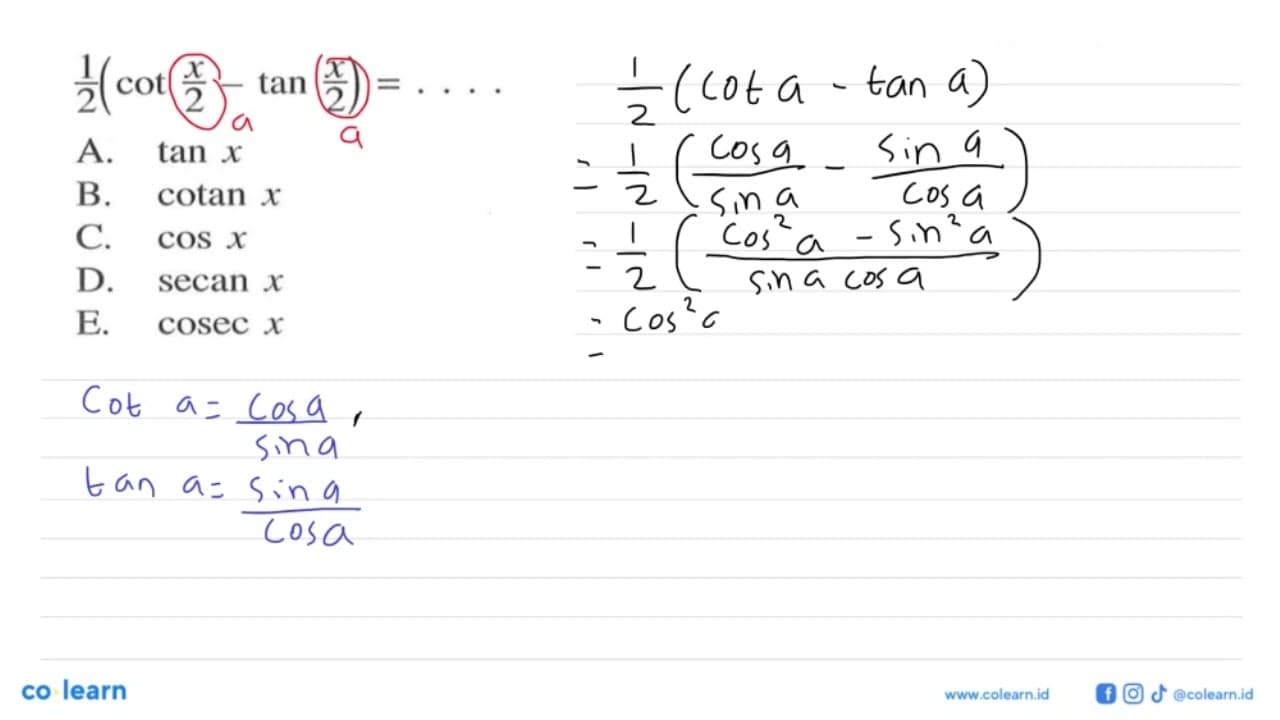 1/2(cot(x/2) - tan(x/2)) = . . . .
a
a
A. tan x
B. cotan x
C. cos x
D. secan x
E. cosec x
1/2 (cot a - tan a)
= 1/2 (cos a/sin a - sin a/cos a)
= 1/2 (cos² a - sin² a/sin a cos a)
= cos² a
Cot a = cos a/sin a ,
tan a = sin a/cos a
co learn
www.colearn.id
@colearn.id